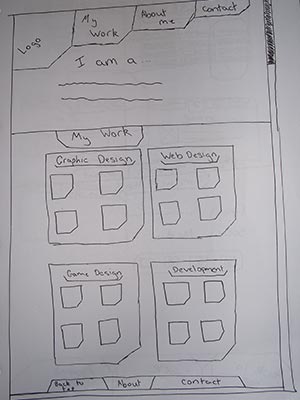 Logo
My
Work
About
me
Contact
I am a
My Work
Graphic Design
Web Design
Game Design
Development
Back to
top
About
Contact